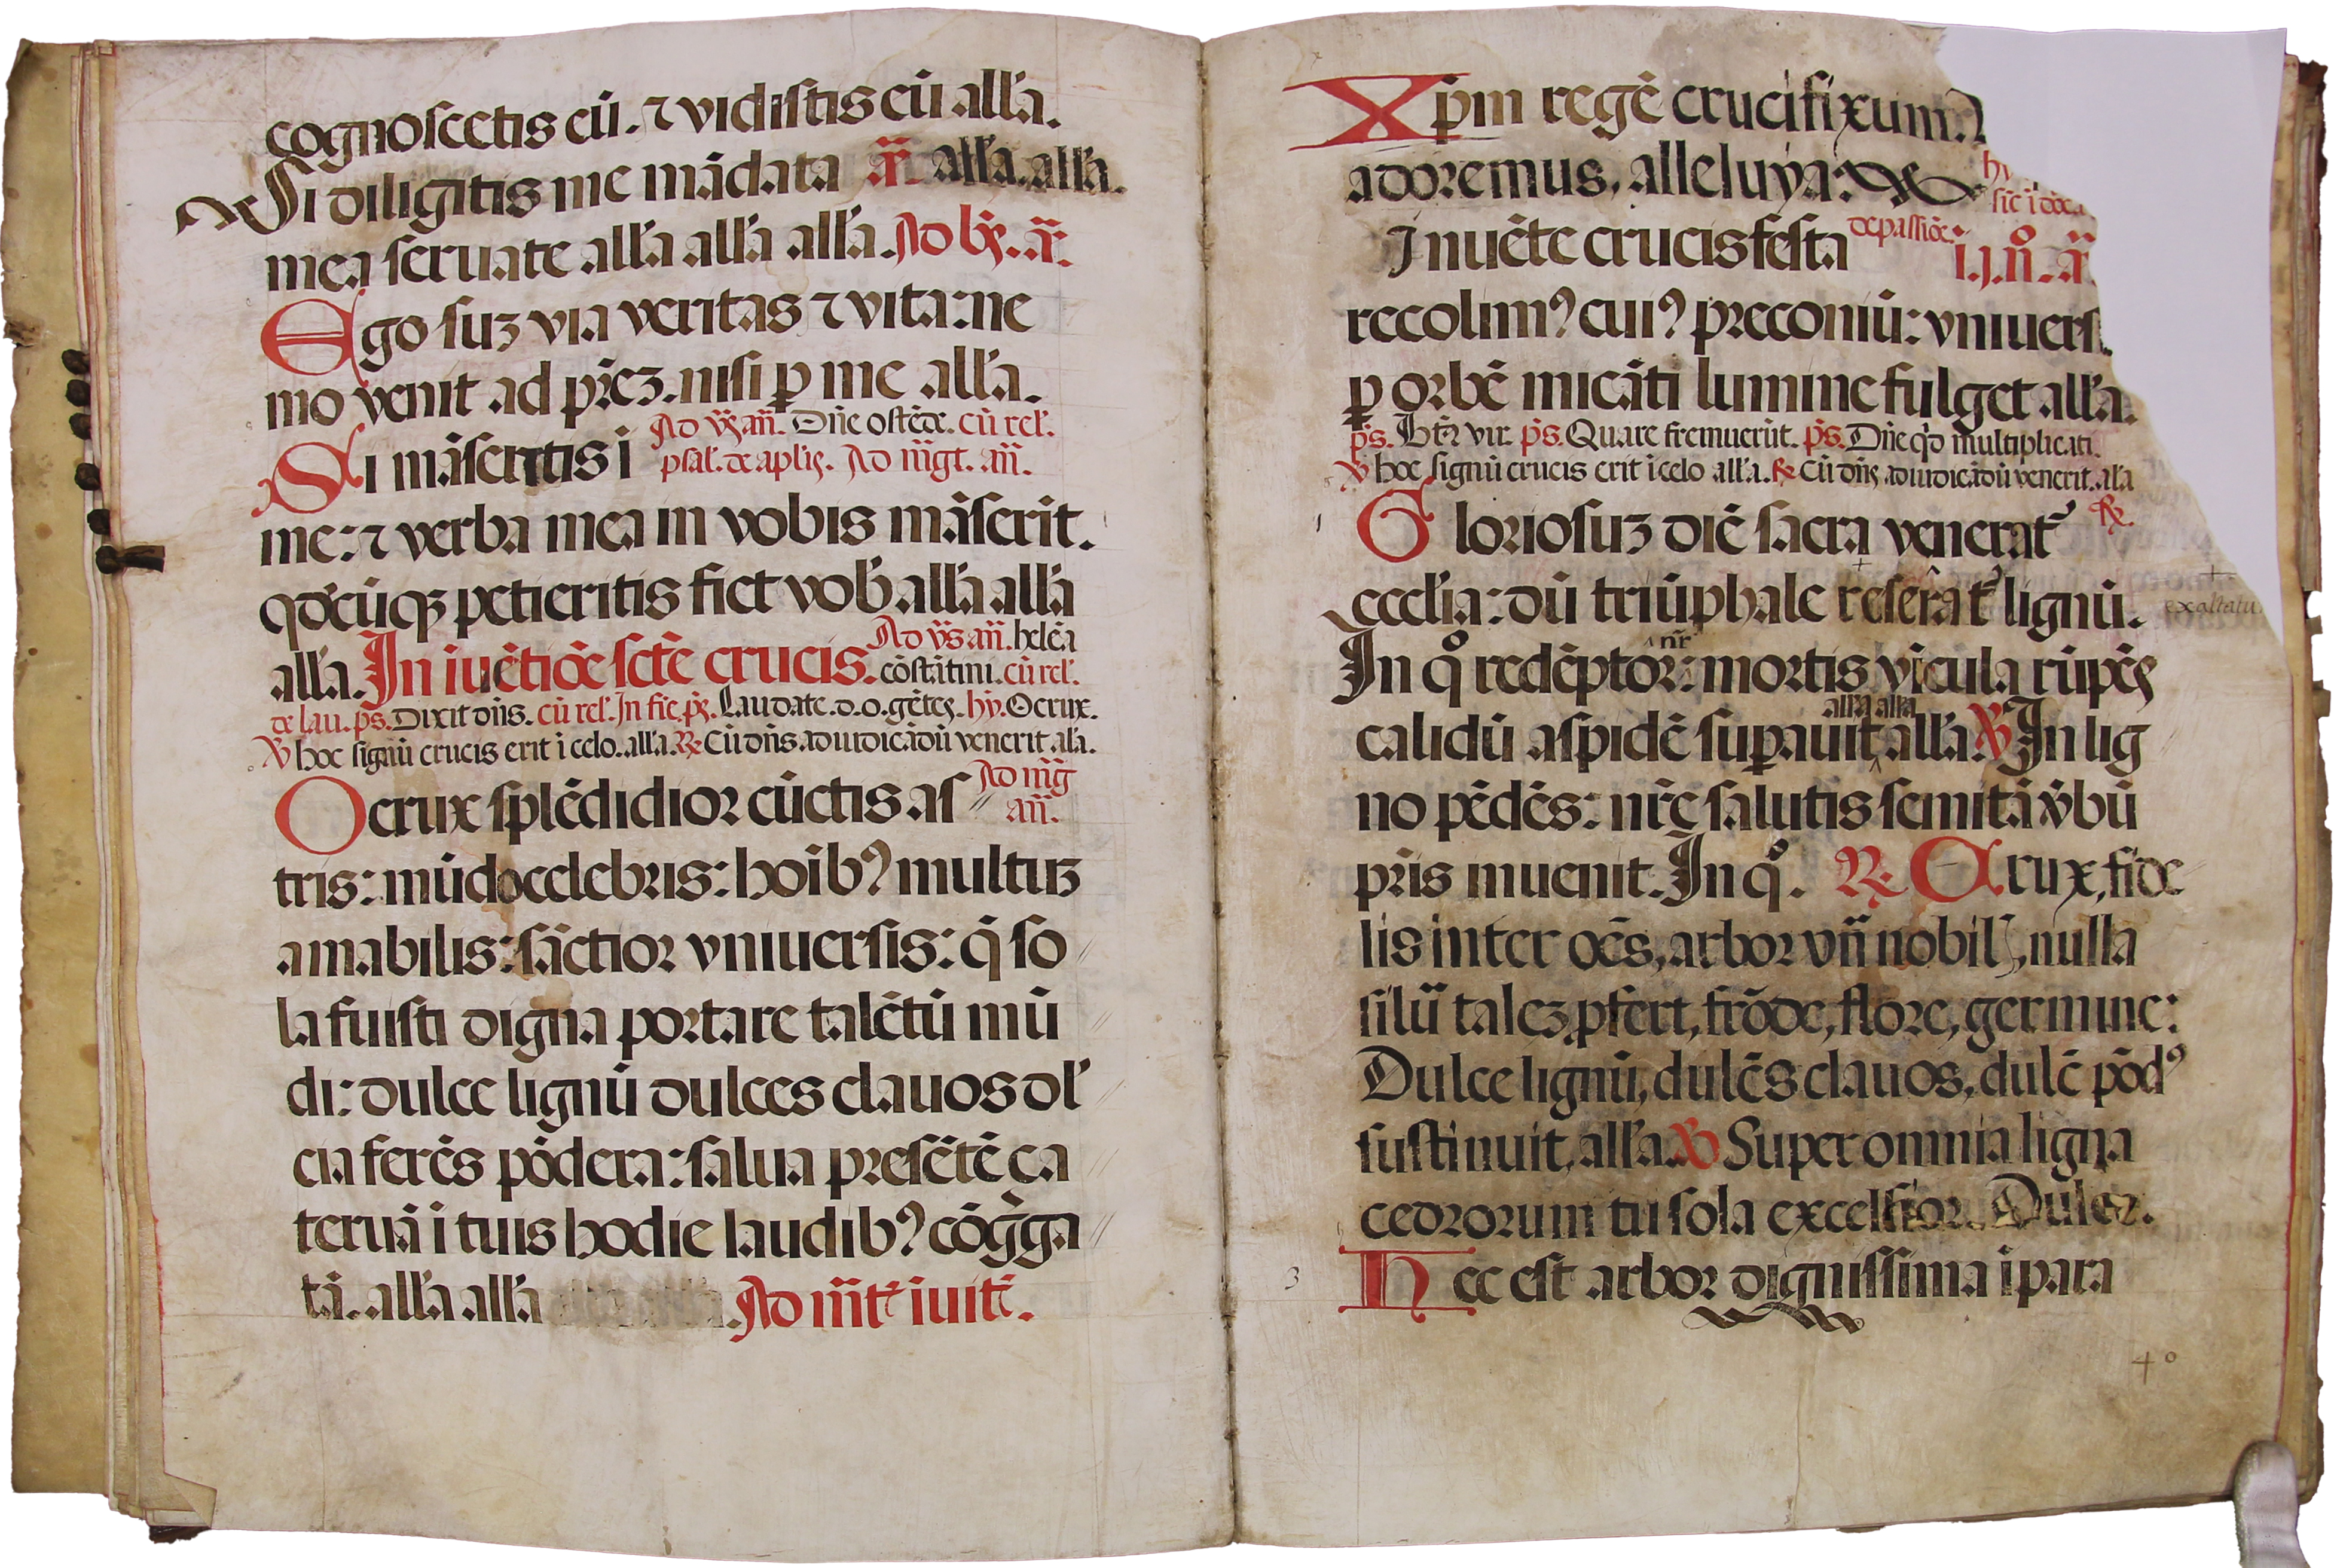 cognoscetis eū. ⁊ vidistis eū all'a.
Si diligitis me mādata a̅n̅. all'a. all'a.
mea seruate all'a all'a all'a. Ad bn̄s. a̅n̅.
Ego suꝫ via veritas ⁊ vita: ne
mo venit ad pr̄eꝫ. nisi ꝑ me all'a.
Ad vs̄ an̄. Dn̄e ostēde. cū rel'.
Si māseritis ī psal'. de apl'is. Ad mgt. an̄.
me: ⁊ verba mea in vobis māserīt.
qd'cūqꝫ petieritis fiet vob' all'a all'a
Ad vs̄ an̄. helēa
all'a. In iuētiōe sct̄e crucis. cōstātini. cū rel'.
de lau. ps̄. Dixit dn̄s. cū rel'. In fīe ps̄. Laudate. d. o. gētes. hy̅. O crux.
℣ hoc signū crucis erit ī celo. all'a. ℟ Cū dn̄s. ad iudicādū venerit al'a.
Ad mg̅
O crux splēdidior cūctis as an̄.
tris: mūdo celebris: hoīb⁹ multuꝫ
amabilis: sāctior vniuersis: q̄ so
la fuisti digna portare talētū mū
di: dulce lignū dulces clauos dl'
cia ferēs pōdera: salua presētē ca
teruā ī tuis hodie laudib⁹ cōg̊ga
tā. all'a all'a Ad mt̄ īuit̄.
Xp̄m regē crucifixum.
adoremus, alleluya:
sic ī
Inuēte crucis festa de passiōe. i. j. n̊. a̅n̅
recolim⁹ cui⁹ preconiū: vniuers
ꝑ orbē micāti lumine fulget all'a.
ps̄. Bt̄⁹ vir. ps̄. Quare fremuerūt. ps̄. Dn̄e qd̄ multiplicati.
℣ hoc signū crucis erit ī celo all'a. ℟ Cū dn̄s ad iudicādū venerit. al'a
Gloriosuꝫ diē sacra venerat᷑ ℟.
eccl'ia: dū triūphale reserāt᷑ lignū. exaltatu
nr̄
In q̊ redēptor: mortis vīcula rūpēs
all'a all'a
calidū aspidē suꝑauit all'a. ℣ In lig
no pēdēs: nr̄e salutis semitā v̄bū
pr̄is inuenit. In q̊. ℟ Crux, fide
lis inter oēs, arbor vn̄ nobil', nulla
silū taleꝫ ꝓfert, frōde, flore, germine:
Dulce lignū, dulcēs clauos, dulcē pōd⁹
sustinuit, all'a. ℣ Super omnia ligna
cedrorum tu sola excelsior. Dulce.
3 Hec est arbor dignissima ī para
4º